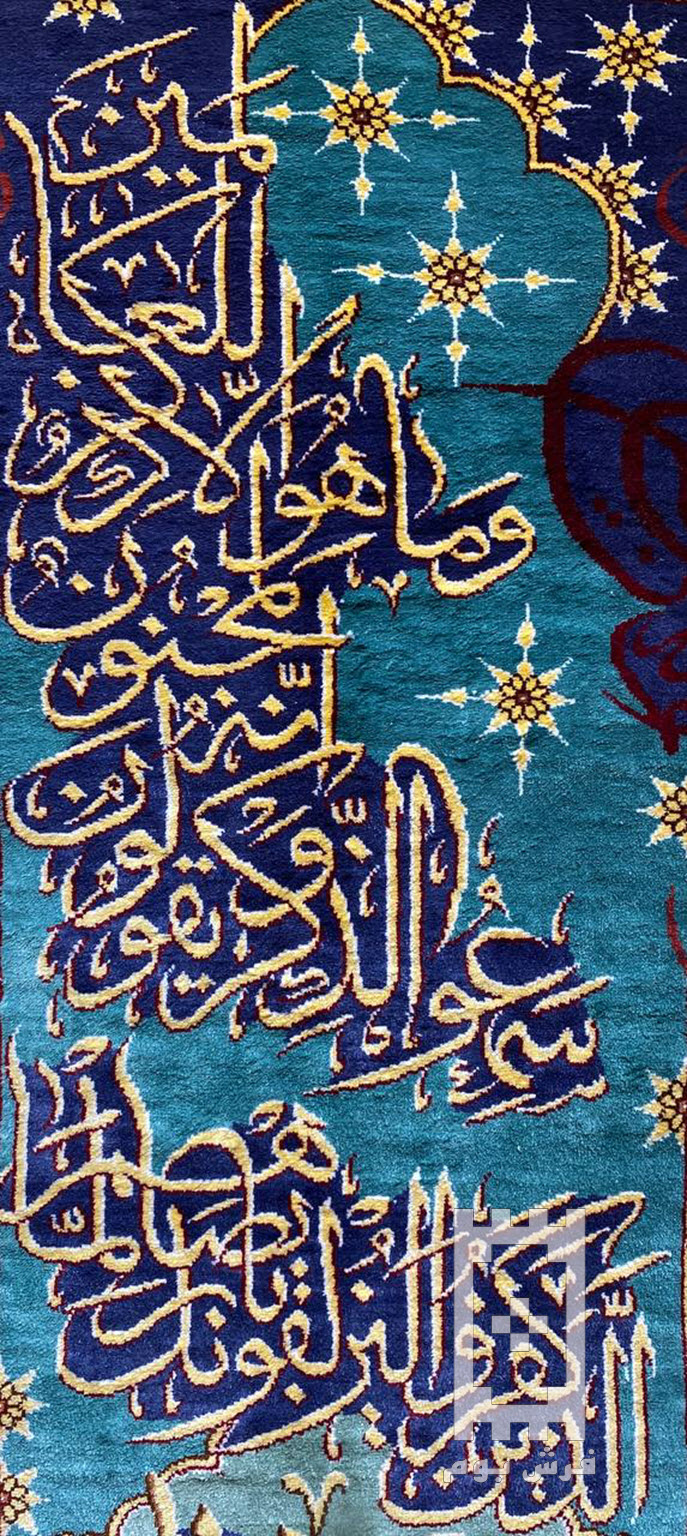 الذين كفروا ليزلقونك بابصارهم لما
سمعوا الذكر ويقولون
انه لمجنون
وما هو الا ذكر للعالمين
فرش بوم